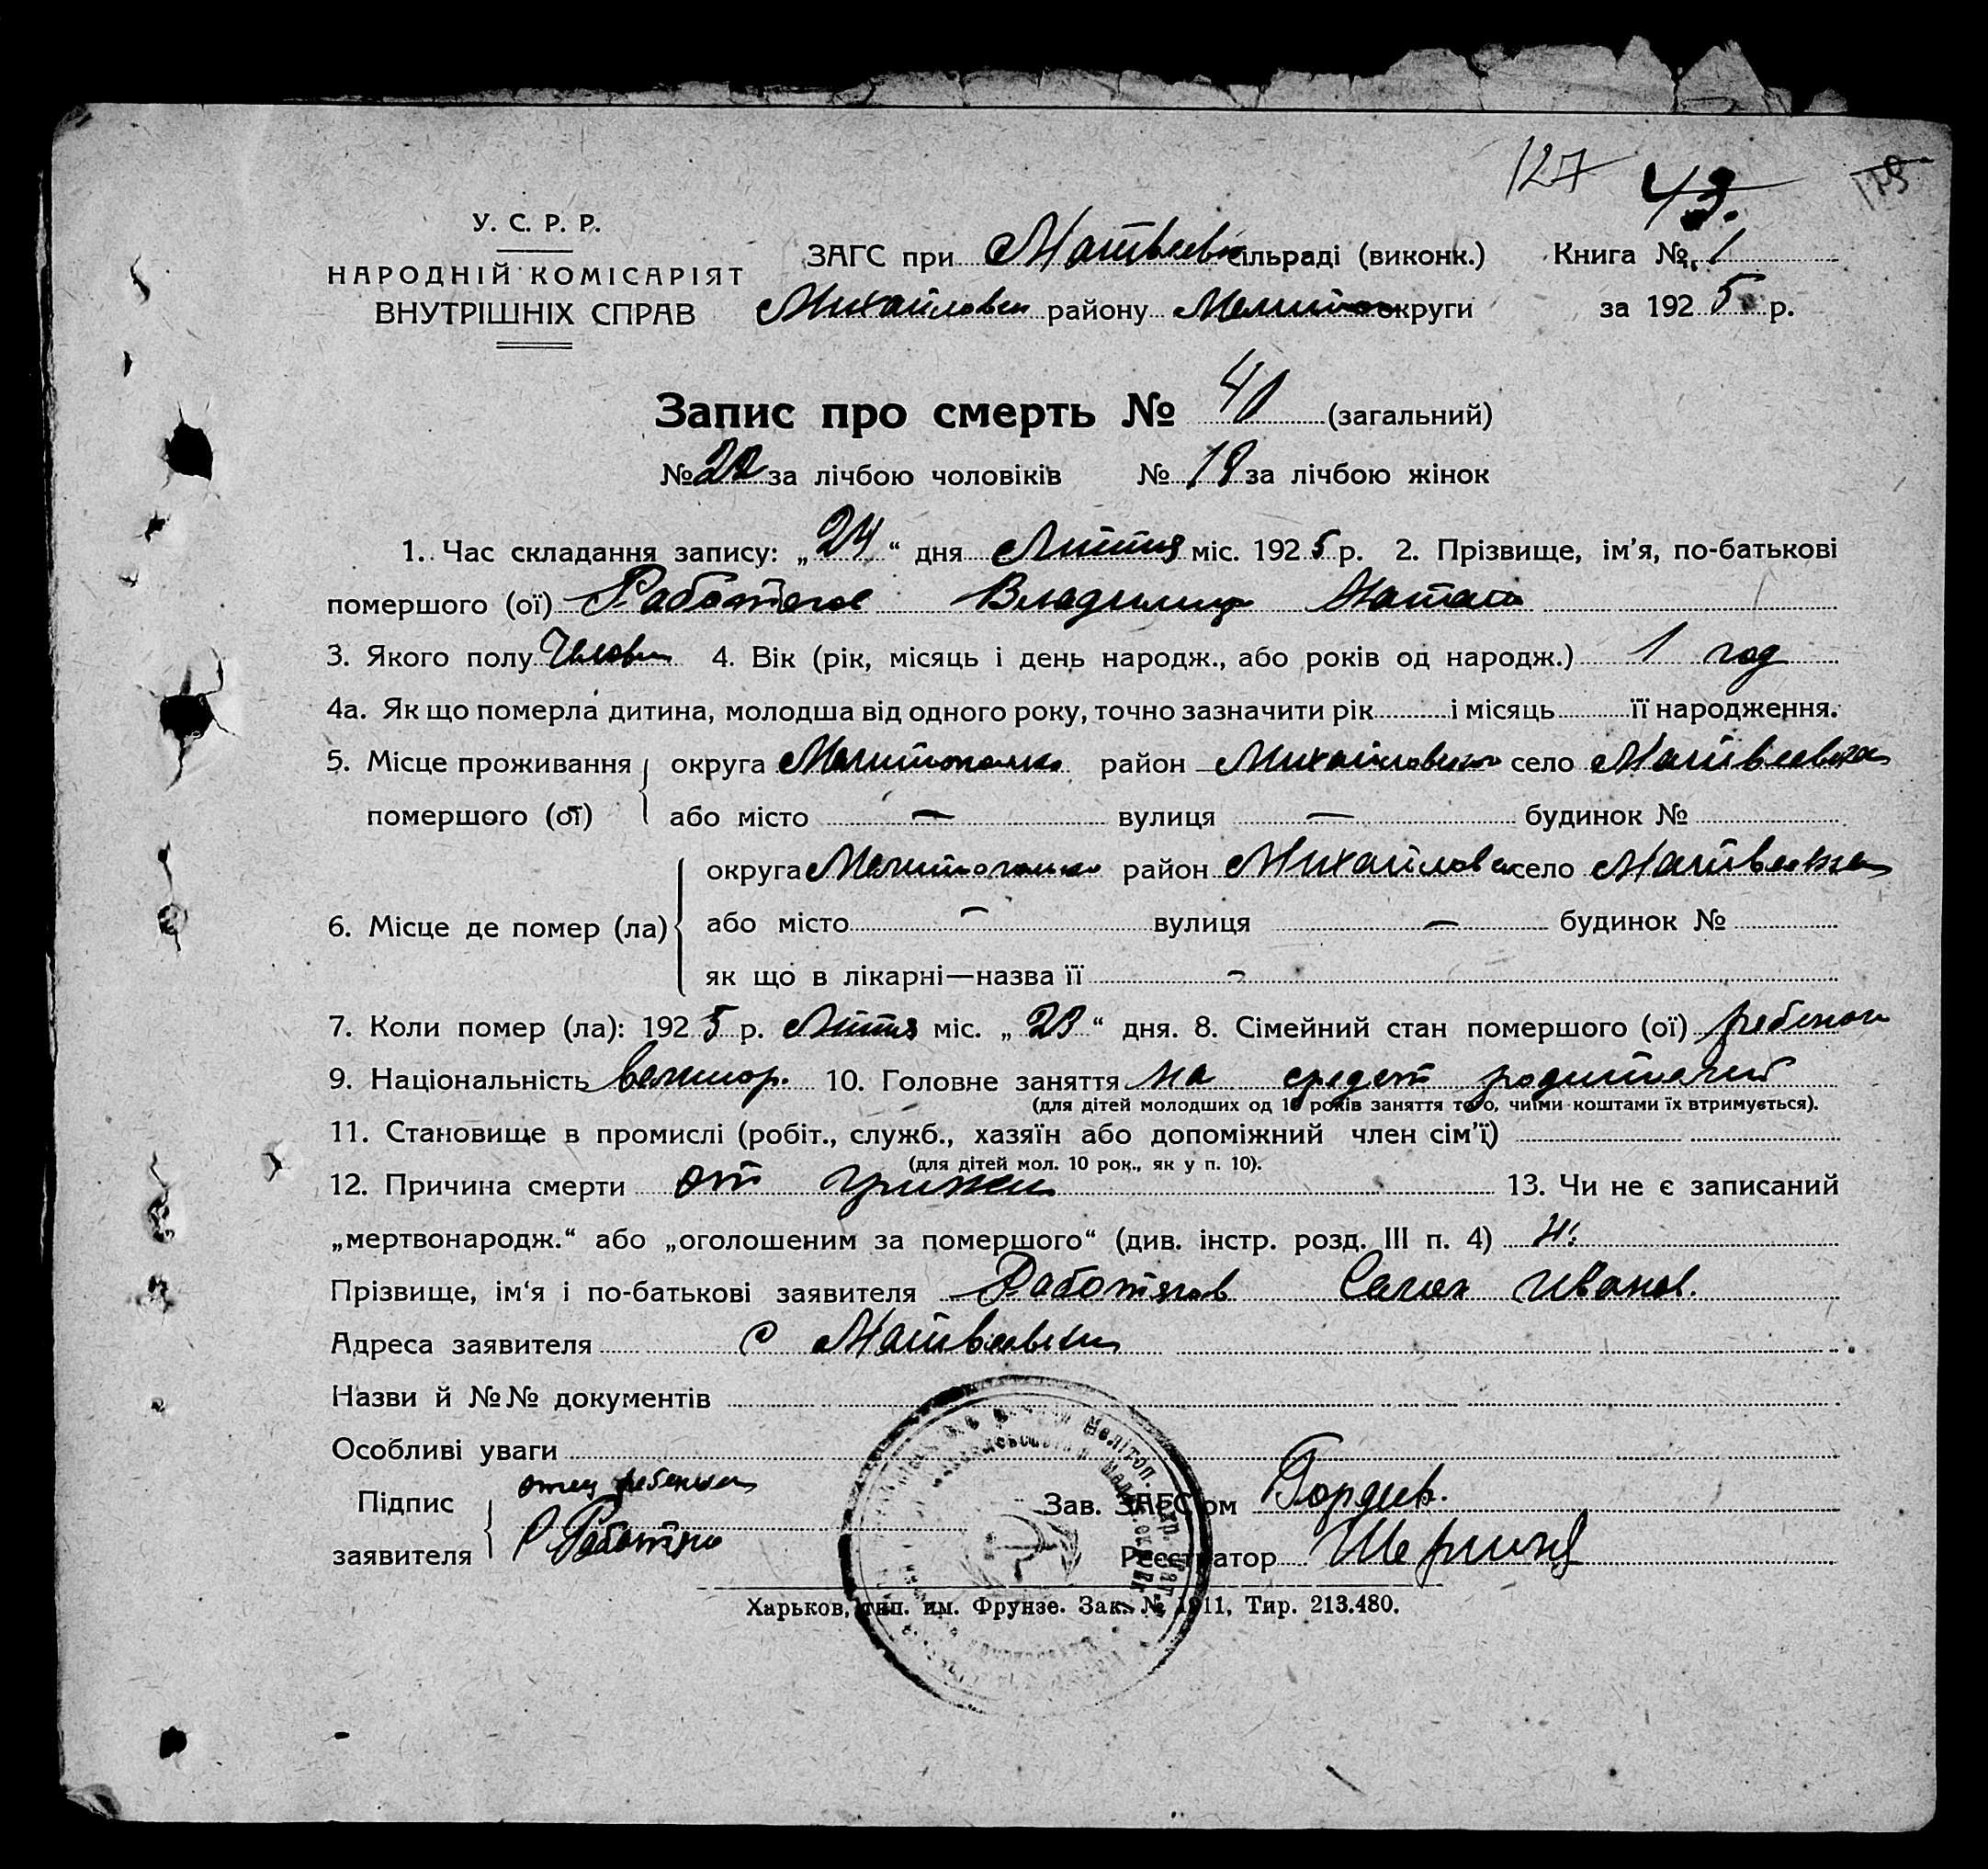 127 43.
У. С. Р. Р.
НАРОДНІЙ КОМІСАРІЯТ
ВНУТРІШНІХ СПРАВ
ЗАГС при Матвеевск сільраді (виконк.) Книга № 1
Михайловск району Мелитоп округи за 1925 р.
Запис про смерть № 40 (загальний)
№ 22 за лічбою чоловіків № 18 за лічбою жінок
1. Час складання запису: „24“ дня міс. 1925 р. 2. Прізвище, ім’я, по-батькові
помершого (ої) Работягов Владимир
3. Якого полу Челов 4. Вік (рік, місяць і день народж., або років од народж.) 1 год
4а. Як що померла дитина, молодша від одного року, точно зазначити рік і місяць її народження.
5. Місце проживання помершого (ої) округа Мелитопольск район Михайловском село Матвеевка
або місто — вулиця — будинок №
6. Місце де помер (ла) округа Мелитопольск район Михайловск село Матвеевка
або місто — вулиця — будинок №
як що в лікарні—назва її —
7. Коли помер (ла): 1925 р. міс. „23“ дня. 8. Сімейний стан помершого (ої) ребенок
9. Національність великор. 10. Головне заняття на средст родителей
(для дітей молодших од 10 років заняття того, чиїми коштами їх втримується).
11. Становище в промислі (робіт., служб., хазяїн або допоміжний член сім’ї)
(для дітей мол. 10 рок., як у п. 10).
12. Причина смерти от грижи 13. Чи не є записаний
„мертвонародж.“ або „оголошеним за помершого“ (див. інстр. розд. III п. 4) Н.
Прізвище, ім‘я і по-батькові заявителя Работягов Иванов.
Адреса заявителя с Матвеевки
Назви й №№ документів
Особливі уваги
Підпис заявителя отец ребенка
Зав. ЗАГС’ом Гордиев.
Реєстратор
Харьков, тип. им. Фрунзе. Зак. № 1911, Тир. 213.480.